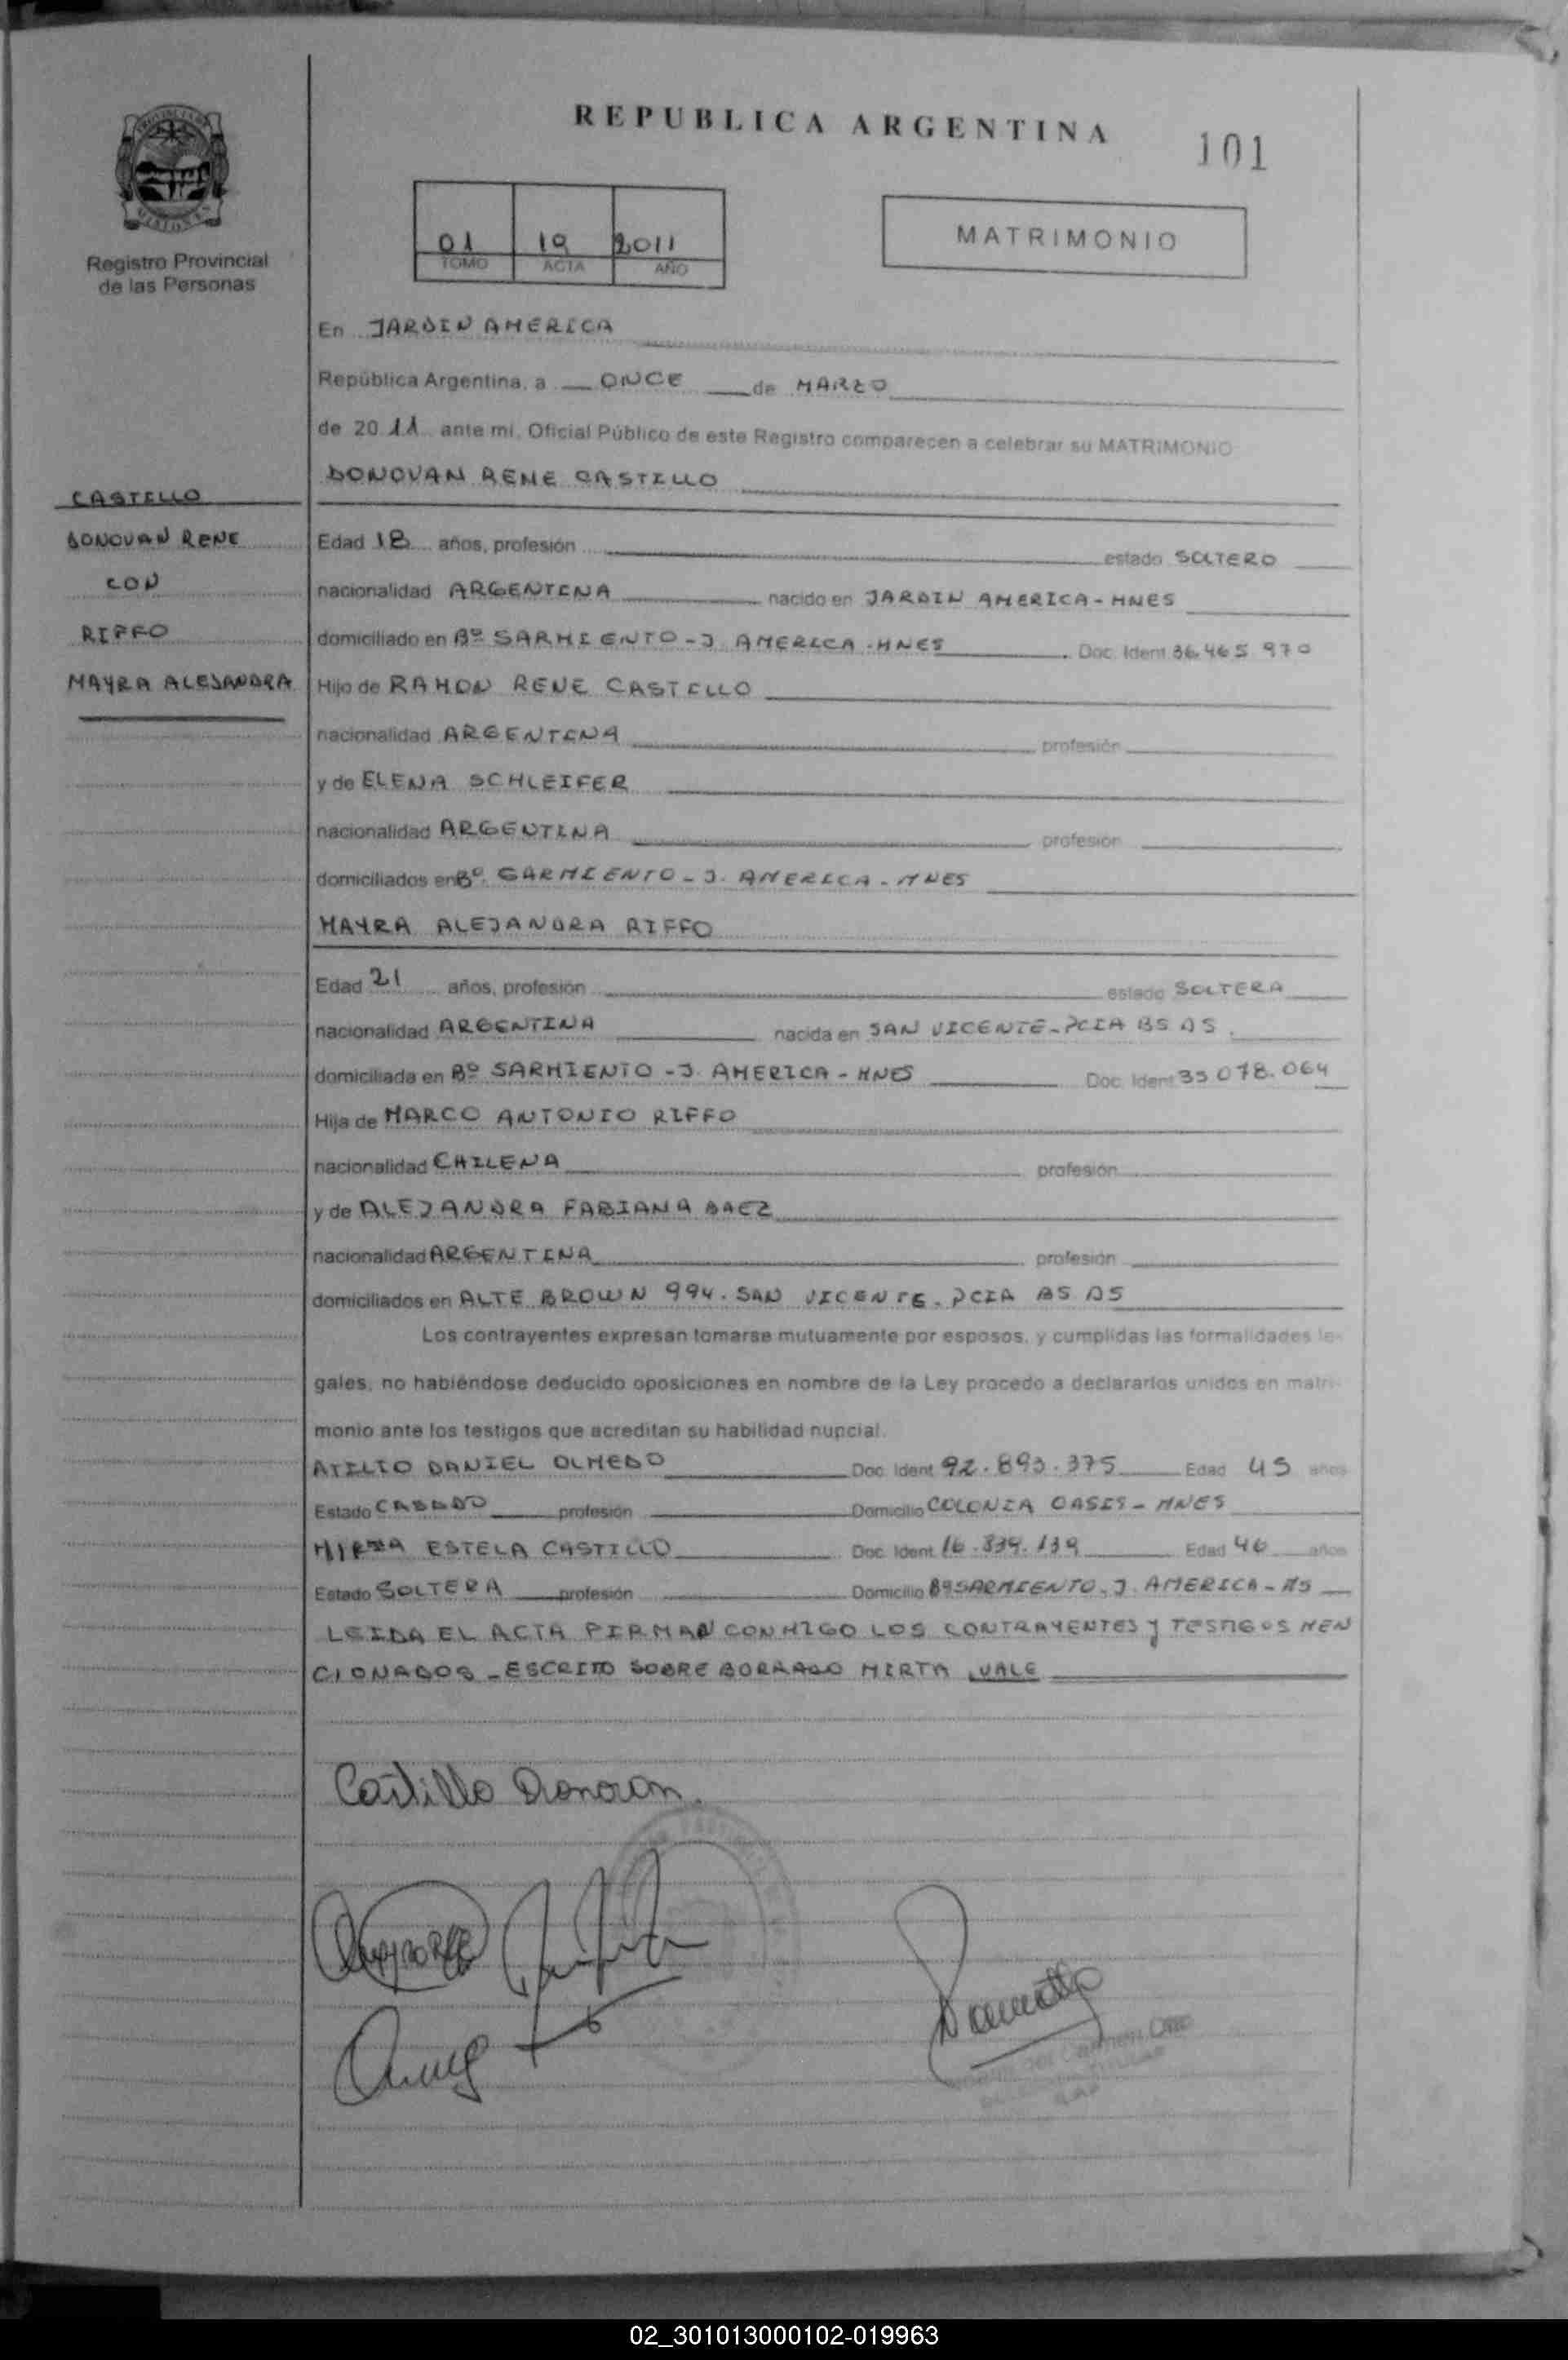 REPUBLICA ARGENTINA
101
01 19 2011
TOMO ACTA AÑO
MATRIMONIO
Registro Provincial
de las Personas
En JARDIN AMERICA
República Argentina, a ONCE de MARZO
de 2011 ante mi, Oficial Público de este Registro comparecen a celebrar su MATRIMONIO
DONOVAN RENE CASTILLO
CASTILLO
DONOVAN RENE
CON
RIFFO
MAYRA ALEJANDRA
Edad 18 años, profesión estado SOLTERO
nacionalidad ARGENTINA nacido en JARDIN AMERICA - MNES
domiciliado en Bº SARMIENTO - J. AMERICA - MNES Doc. Ident. 36.465.970
Hijo de RAMON RENE CASTILLO
nacionalidad ARGENTINA profesión
y de ELENA SCHLEIFER
nacionalidad ARGENTINA profesión
domiciliados en Bº. SARMIENTO - J. AMERICA - MNES
MAYRA ALEJANDRA RIFFO
Edad 21 años, profesión estado SOLTERA
nacionalidad ARGENTINA nacida en SAN VICENTE - PCIA BS AS.
domiciliada en Bº SARMIENTO - J. AMERICA - MNES Doc. Ident. 35 078.064
Hija de MARCO ANTONIO RIFFO
nacionalidad CHILENA profesión
y de ALEJANDRA FABIANA BAEZ
nacionalidad ARGENTINA profesión
domiciliados en ALTE BROWN 994. SAN VICENTE. PCIA BS AS
Los contrayentes expresan tomarse mutuamente por esposos, y cumplidas las formalidades le-
gales, no habiéndose deducido oposiciones en nombre de la Ley procedo a declararlos unidos en matri-
monio ante los testigos que acreditan su habilidad nupcial.
ATILIO DANIEL OLMEDO Doc. Ident. 92.893.375 Edad 45 años
Estado CASADO profesión Domicilio COLONIA OASIS - MNES
MIRTA ESTELA CASTILLO Doc. Ident. 16.834.139 Edad 46 años
Estado SOLTERA profesión Domicilio Bº SARMIENTO. J. AMERICA - MS
LEIDA EL ACTA FIRMAN CONMIGO LOS CONTRAYENTES y TESTIGOS MEN
CIONADOS - ESCRITO SOBRE BORRADO MIRTA VALE
Castillo Donovan.
02_301013000102-019963